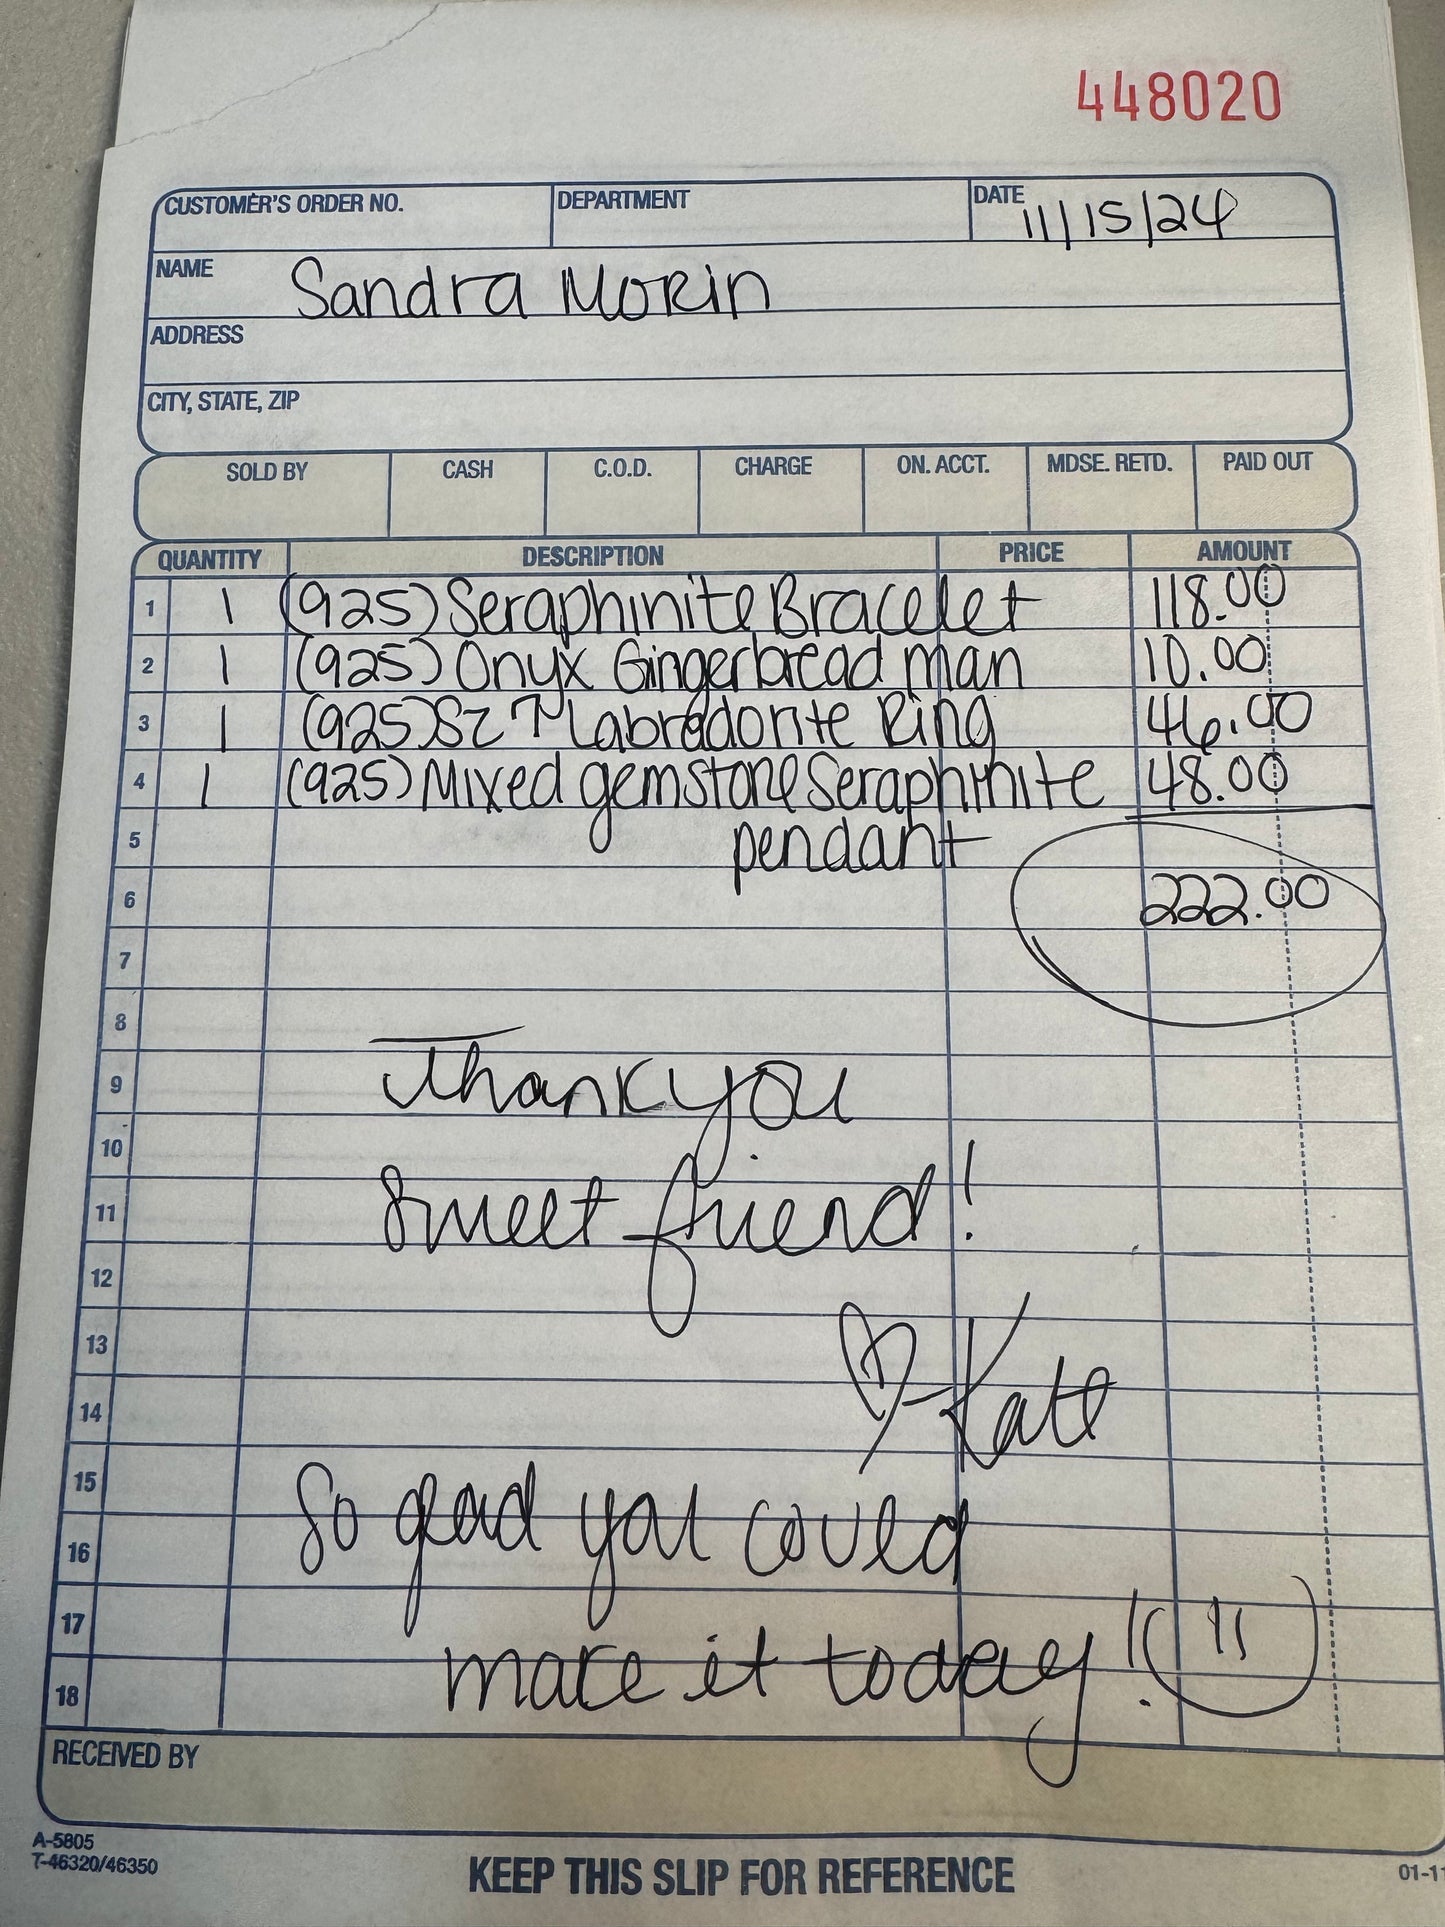 448020
CUSTOMER'S ORDER NO. DEPARTMENT DATE 11/15/24
NAME Sandra Morin
ADDRESS
CITY, STATE, ZIP
SOLD BY CASH C.O.D. CHARGE ON. ACCT. MDSE. RETD. PAID OUT
QUANTITY DESCRIPTION PRICE AMOUNT
1 1 (925) Seraphinite Bracelet 118.00
2 1 (925) Onyx Gingerbread man 10.00
3 1 (925) SZ 7 Labradorite Ring 46.00
4 1 (925) Mixed gemstone Seraphinite 48.00
5 pendant
6 222.00
7
8
9 Thank you
10
11 sweet friend!
12
13
14 -Kate
15
16 So glad you could
17
18 make it today!
RECEIVED BY
A-5805
T-46320/46350
KEEP THIS SLIP FOR REFERENCE
01-11